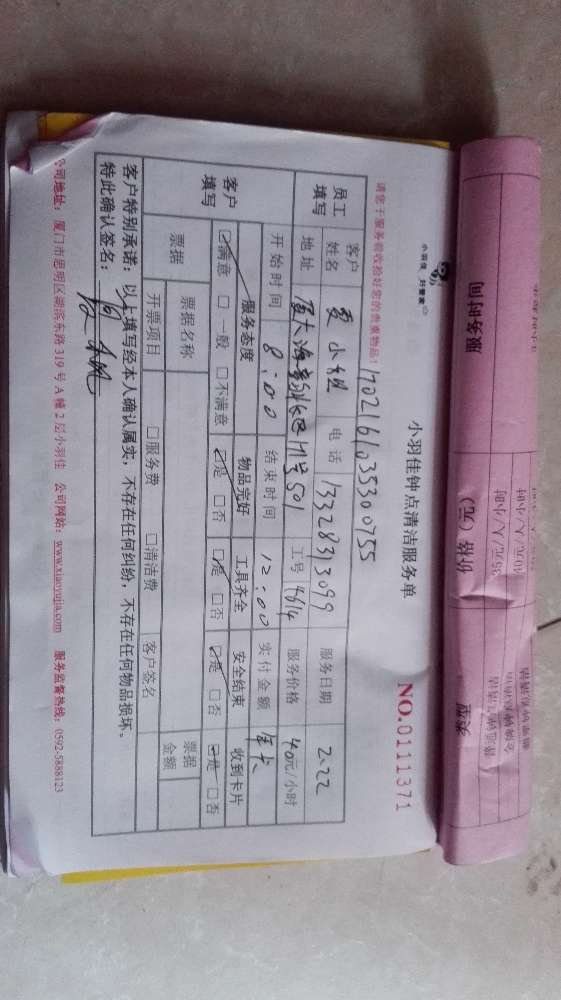 服务时间
价格（元）
类型
小羽佳 好管家
小羽佳钟点清洁服务单
NO.0111371
请您于服务前收捡好您的贵重物品！
170216103530075 5
员工填写
客户姓名 小姐 电话 13328313099 服务日期 2.22
地址 501 工号 4614 服务价格 40元/小时
开始时间 8:00 结束时间 12:00 实付金额 年卡
客户填写
服务态度 物品完好 工具齐全 安全结束 收到卡片
☑满意 □一般 □不满意 ☑是 □否 ☑是 □否 ☑是 □否 ☑是 □否
票据 票据名称 票据金额
开票项目 □服务费 □清洁费 客户签名
客户特别承诺：以上填写经本人确认属实，不存在任何纠纷，不存在任何物品损坏。
特此确认签名：
公司地址：厦门市思明区湖滨东路319号A幢2层小羽佳 公司网站：www.xiaoyujia.com 服务监督热线：0592-5888123